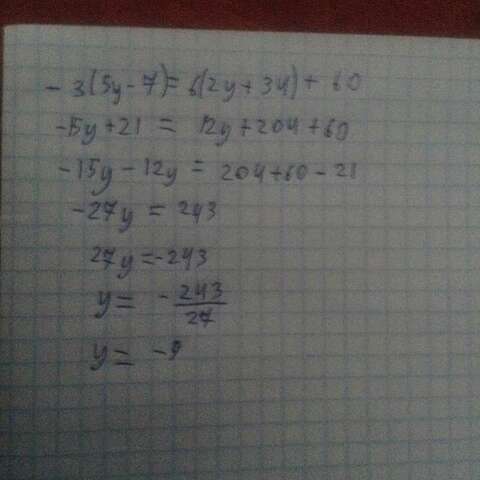 - 3(5y-7)= 6(2y+34)+ 60
-15y+21 = 12y+204+60
-15y-12y = 204+60-21
-27y = 243
27y=-243
y= -243/27
y= -9